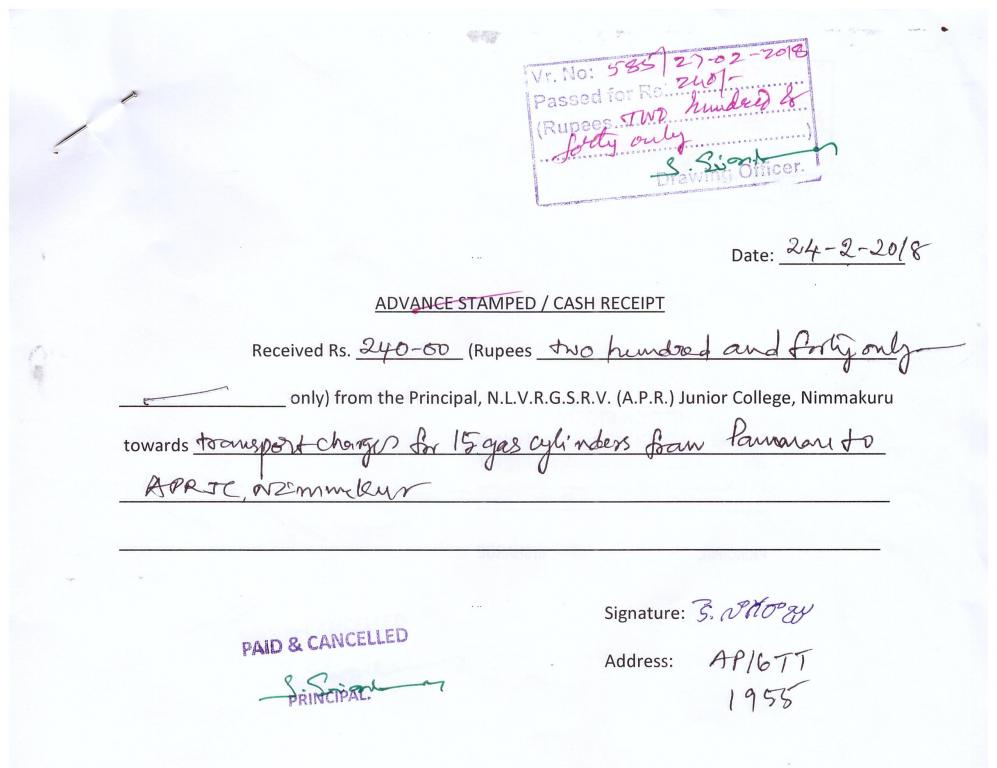 Vr. No: 585/27-02-2018
Passed for Rs. 240/-
(Rupees TWO hundred &
forty only)
Drawing Officer.
Date: 24-2-2018
ADVANCE STAMPED / CASH RECEIPT
Received Rs. 240-00 (Rupees two hundred and forty only
only) from the Principal, N.L.V.R.G.S.R.V. (A.P.R.) Junior College, Nimmakuru
towards transport charges for 15 gas cylinders from to
APRJC, Nimmekur
Signature:
PAID & CANCELLED
Address: AP16TT
PRINCIPAL.
1955